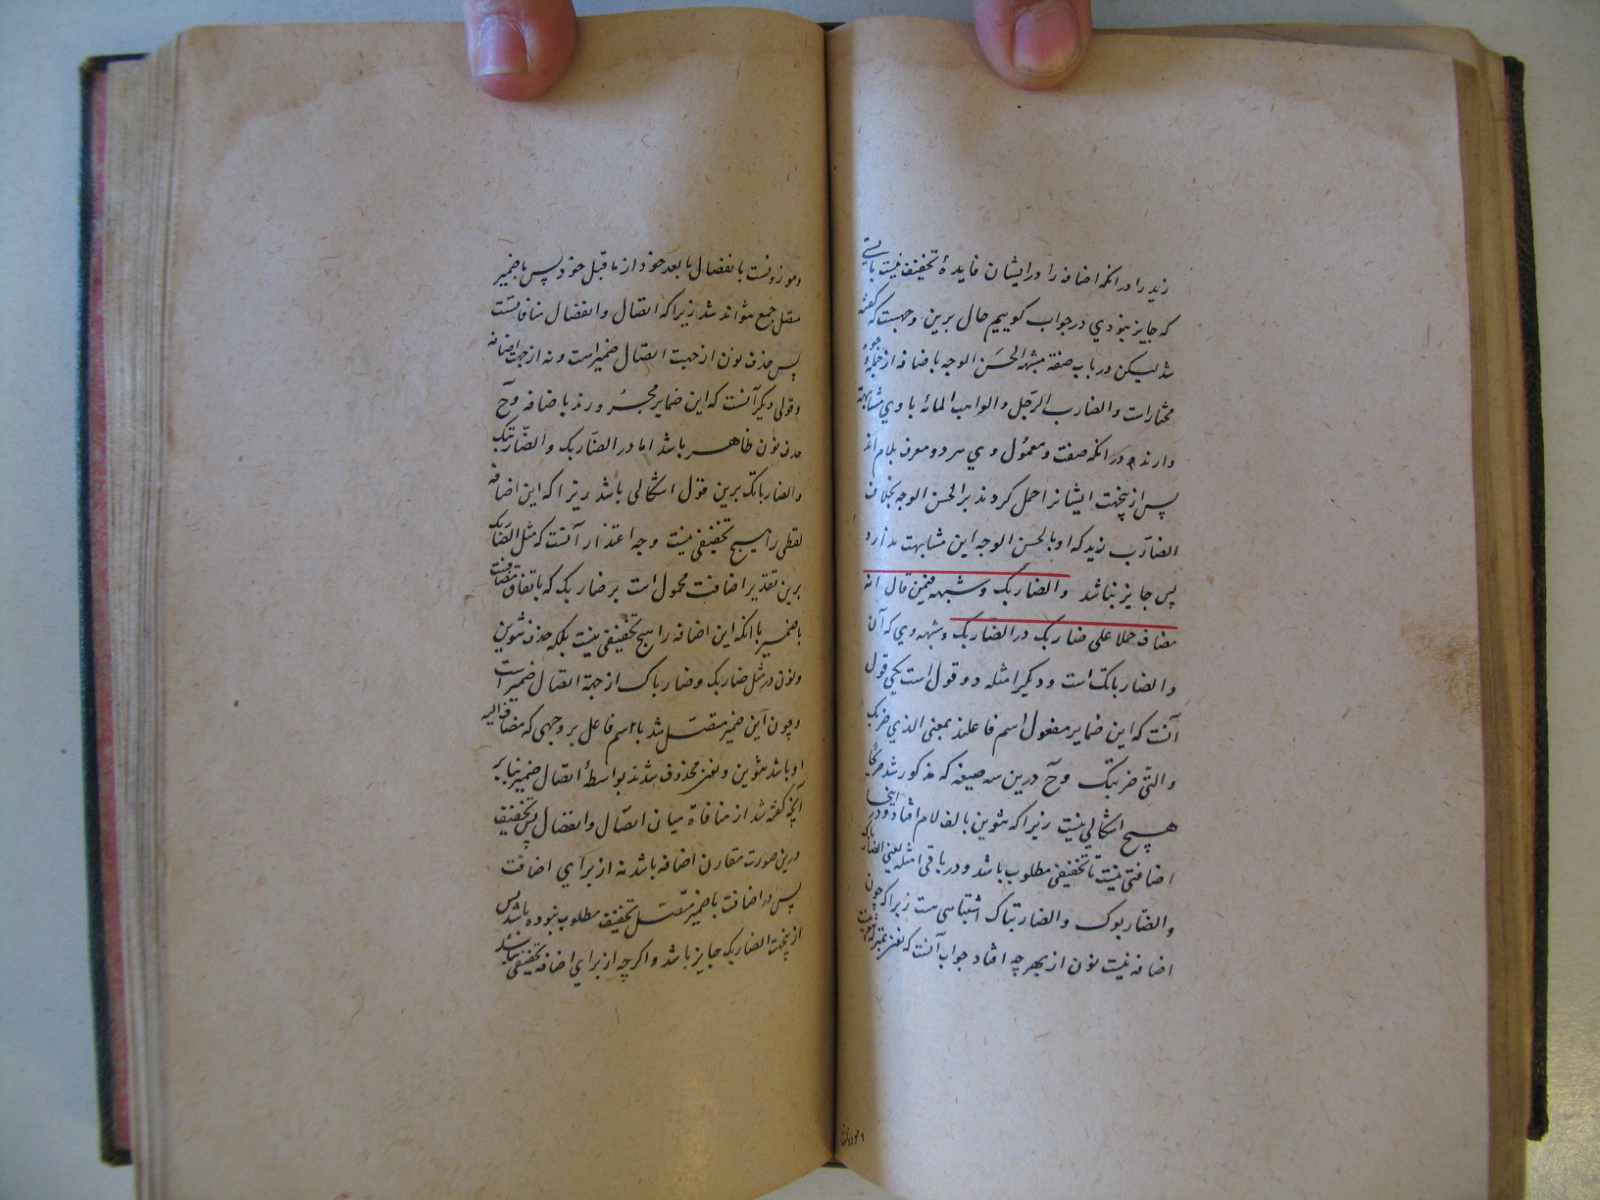 زید را در آنکه اضافه را در ایشان فایدهٔ تخفیف نیست بایستی
که جایز نبودی در جواب گوییم حال برین وجهست که گفته
شد لیکن در باب صفة مشبهه الحسَن الوجه باضافه از جمله وجوه
مختار است و الضارب الرّجل و الواهب المائة با وی مشابهة
دارند در آنکه صفت و معمول وی هر دو معرف بلام اند
پس از ینجهت ایشانرا حمل کردند بر الحسن الوجه بخلاف
الضارب زید که او بالحسن الوجه این مشابهت ندارد
پس جایز نباشد والضاربک وشبهه فیمن قال انه
مضاف حملا علی ضاربک در الضّاربک و شبهه وی که آن
والضارباتک است و دیگر امثله دو قول است یکی قول
آنست که این ضمایر مفعول اسم فاعلند بمعنی الذی ضربک
والتی ضربتک وحَ درین سه صیغه که مذکور شد
هیچ اشکالی نیست زیرا که تنوین بالف لام افتاد و در اینجا
اضافتی نیست تا تخفیفی مطلوب باشد و در باقی امثله یعنی الضارباک
والضّاربوک والضاربتاک اشتباهی هست زیرا که چون
اضافه نیست نون از بهر چه افتاد جواب آنست که
وموزونست بانفصال مابعد خود از ماقبل خود پس باضمیر
متصل جمع نتواند شد زیرا که اتصال وانفصال منافاتست
پس حذف نون از جهت اتصال ضمیر است و نه از جهت اضافه
و قولی دیگر آنست که این ضمایر مجرورند باضافه وحَ
حذف نون ظاهر باشد اما در الضّاربک والضّاربتک
والضارباتک برین قول اشکالی باشد زیرا که این اضافه
لفظی را هیچ تخفیفی نیست وجه اعتذار آنست که مثل الضاربک
برین تقدیر اضافت محمول است بر ضاربک که باتفاق مضافست
باضمیر با آنکه این اضافه را هیچ تخفیفی نیست بلکه حذف تنوین
و نون در مثل ضاربک و ضارباک از جهة اتصال ضمیر است
و چون این ضمیر متصل شد با اسم فاعل بر وجهی که مضاف الیه
او باشد تنوین و نون محذوف شدند بواسطهٔ اتصال ضمیر بنابر
آنچه گفته شد از منافاة میان اتصال وانفصال پس تخفیف
درین صورت مقارن اضافه باشد نه از برای اضافت
پس در اضافت باضمیر متصل تخفیف مطلوب نبوده باشد پس
از ینجهت الضاربک جایز باشد و اگر چه از برای اضافه تخفیفی نباشد